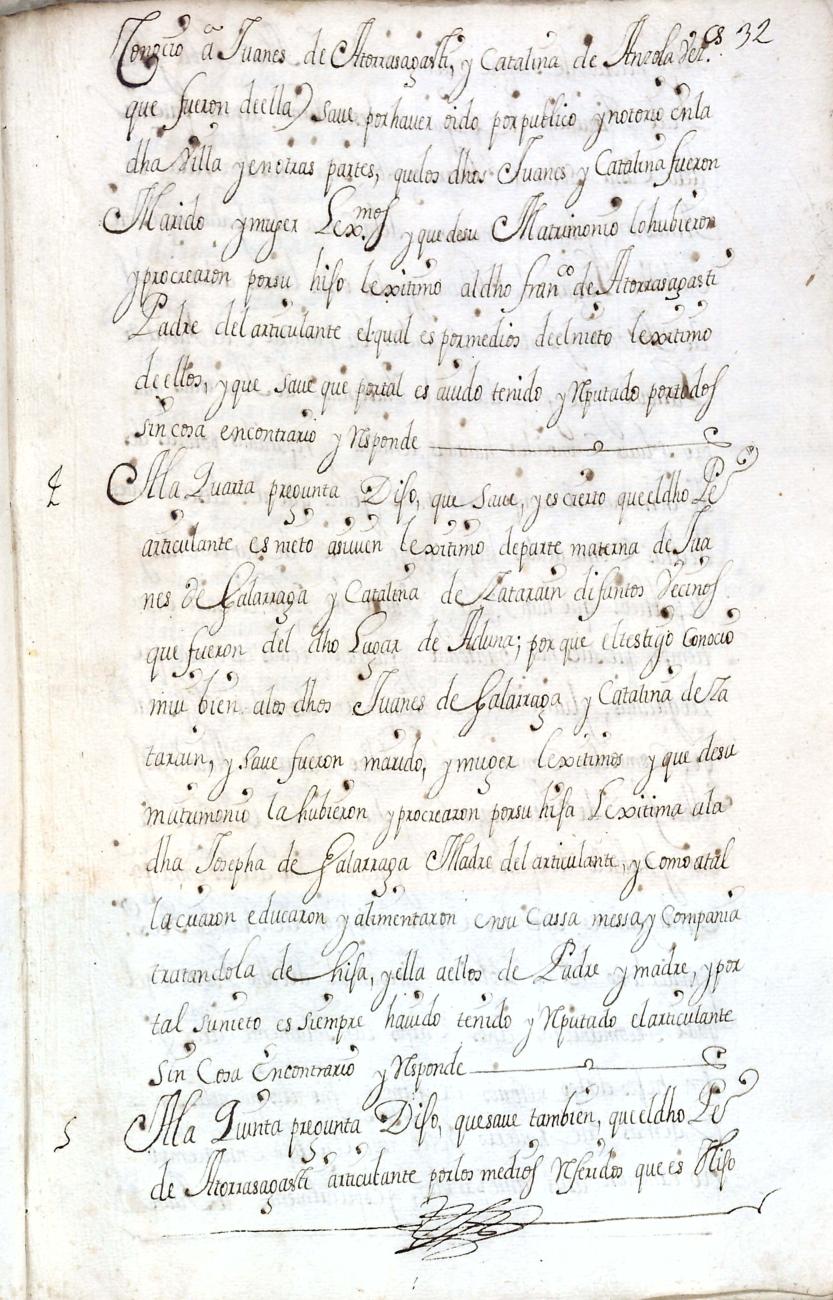 Conocio a Juanes de Atorrasagasti, y Catalina de Anzola Vez.os 32
que fueron deella) save por haver oido por publico y notorio en la
dha Villa y en otras partes, quelos dhos Juanes y Catalina fueron
Marido y muger Lex.mos y que desu Matrimonio lo hubieron
y procrearon por su hijo lexitimo al dho fran.co de Atorrasagasti
Padre del articulante el qual es por medios de el nieto lexitimo
de ellos, y que save que por tal es avido tenido y Rputado por todos
sin cosa encontrario y Rsponde
4 A la Quarta pregunta Dijo, que save, y es cierto que el dho Pe
articulante es nieto asuven lexitimo de parte materna de Jua
nes de Galarraga y Catalina de Zatarain difuntos Vecinos
que fueron del dho Lugar de Aduna; por que el testigo Conocio
mui bien alos dhos Juanes de Galarraga y Catalina de Za
tarain, y save fueron marido, y muger lexitimos y que desu
matrimonio la hubieron y procrearon por su hija Lexitima ala
dha Josepha de Galarraga Madre del articulante, y Como atal
la criaron educaron y alimentaron en su Cassa messa, y Compania
tratandola de hija, y ella aellos de Padre y madre, y por
tal su nieto es siempre havido tenido y Rputado el articulante
Sin Cosa Encontrario y Rsponde
5 A la Quinta pregunta Dijo, que save tambien, que el dho Pe
de Atorrasagasti articulante por los medios Rferidos que es Hijo